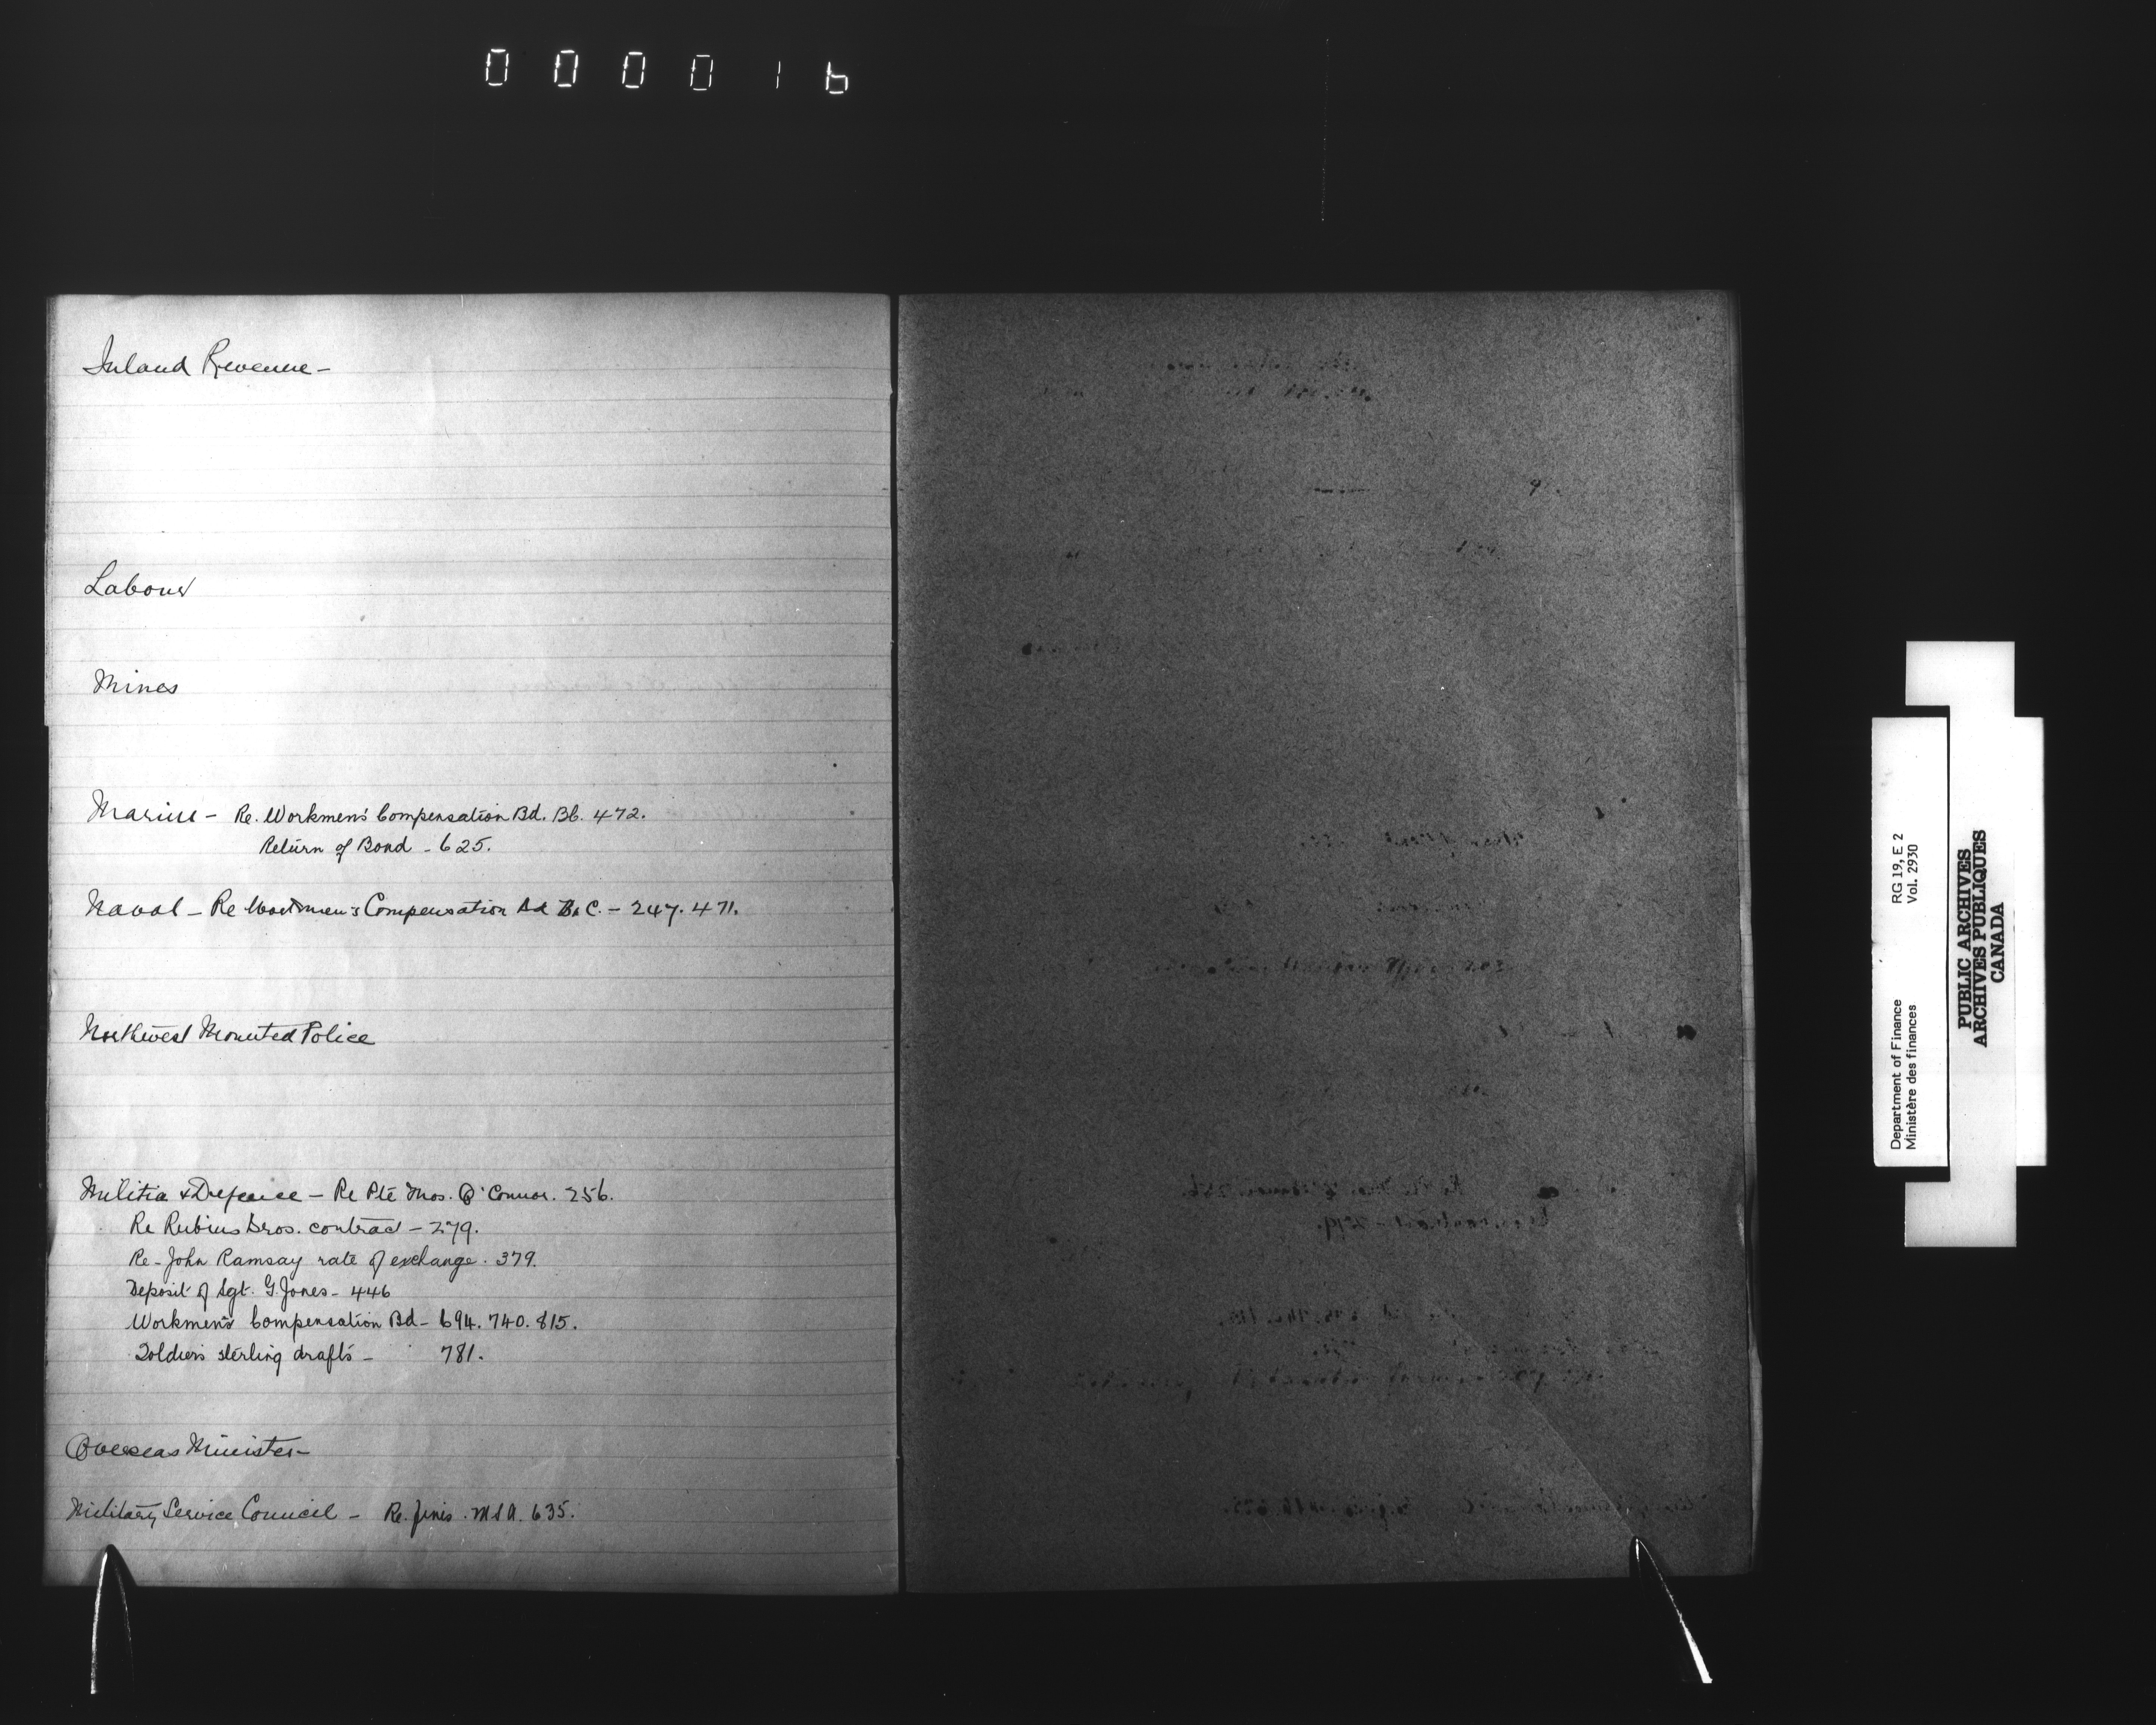 000016
Inland Revenue -
Labour
Mines
Marine - Re. Workmen's Compensation Bd. BC. 472.
Return of Bond - 625.
Naval - Re Workmen's Compensation Bd B.C. - 247. 471.
Northwest Mounted Police
Militia & Defence - Re Pte Thos. O'Connor. 256.
Re Rubins Bros. contract - 279.
Re - John Ramsay rate of exchange. 379.
Deposit of Sgt. G. Jones - 446
Workmen's Compensation Bd - 694. 740. 815.
Soldiers sterling drafts - 781.
Overseas Minister -
Military Service Council - Re. fines. M S A. 635.
Department of Finance RG 19, E 2
Ministère des finances Vol. 2930
PUBLIC ARCHIVES
ARCHIVES PUBLIQUES
CANADA